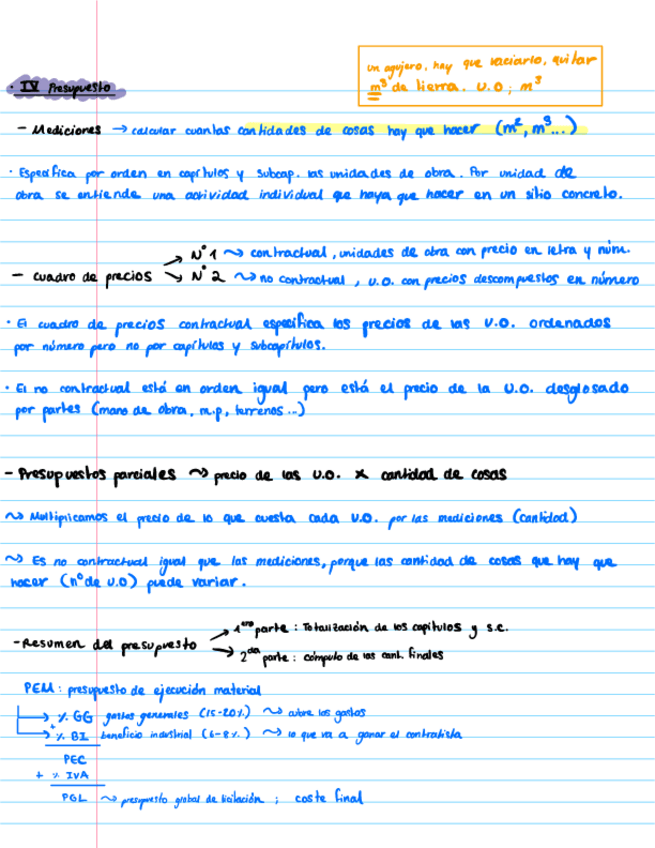 un agujero, hay que vaciarlo, quitar
m³ de tierra. U.O; m³
· IV Presupuesto
- Mediciones → calcular cuantas cantidades de cosas hay que hacer (m², m³...)
· Especifica por orden en capítulos y subcap. las unidades de obra. Por unidad de
obra se entiende una actividad individual que haya que hacer en un sitio concreto.
- cuadro de precios
→ N°1 ~> contractual, unidades de obra con precio en letra y núm.
→ N°2 ~> no contractual, u.o. con precios descompuestos en número
· El cuadro de precios contractual especifica los precios de las U.O. ordenados
por número pero no por capítulas y subcapítulos.
· El no contractual está en orden igual pero está el precio de la U.O. desglosado
por partes (mano de obra, m.p, terrenos...)
- Presupuestos parciales ~> precio de las U.O. x cantidad de cosas
~> Multiplicamos el precio de lo que cuesta cada U.O. por las mediciones (cantidad)
~> Es no contractual igual que las mediciones, porque las cantidad de cosas que hay que
hacer (n° de U.O) puede variar.
- Resumen del presupuesto
→ 1era parte: Totalización de los capítulos y s.c.
→ 2da parte: cómputo de las cant. finales
PEM: presupuesto de ejecución material
→ % GG gastos generales (15-20%) ~> cubre los gastos
+
→ % BI beneficio industrial (6-8%) ~> lo que va a ganar el contratista
PEC
+ % IVA
PGL ~> presupuesto global de licitación; coste final